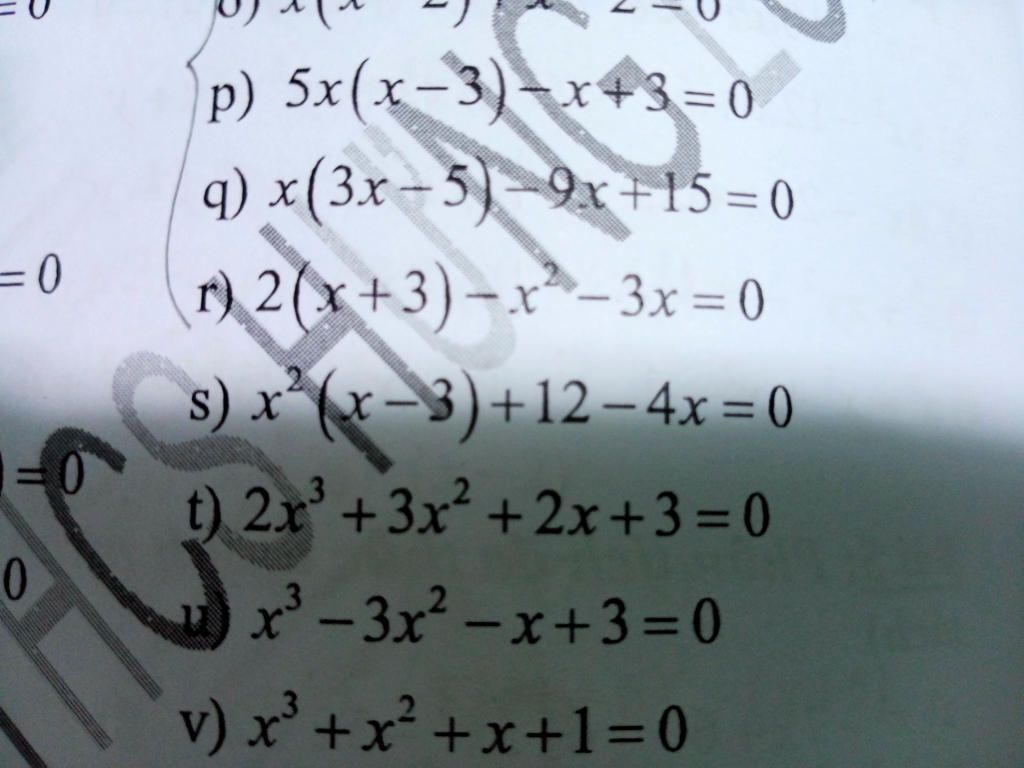 = 0
o) x(x − 2) + x − 2 = 0
p) 5x(x − 3) − x + 3 = 0
q) x(3x − 5) − 9x + 15 = 0
= 0
r) 2(x + 3) − x² − 3x = 0
s) x²(x − 3) + 12 − 4x = 0
) = 0
t) 2x³ + 3x² + 2x + 3 = 0
0
u) x³ − 3x² − x + 3 = 0
v) x³ + x² + x + 1 = 0
HCS HƯNG